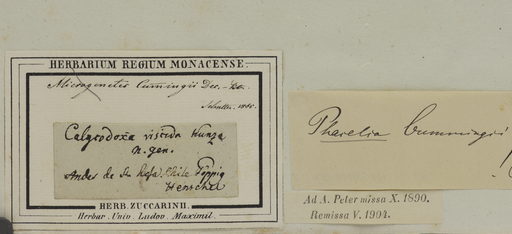 HERBARIUM REGIUM MONACENSE.
Microgenetes Cumingii Dec.
Calycodoxa viscida Kunza
n. gen.
Andes de Sta Rosa. Chile Pöppig
Henschel
HERB. ZUCCARINII.
Herbar. Univ. Ludov. Maximil.
Phacelia Cummingii
Ad A. Peter missa X. 1890.
Remissa V. 1904.